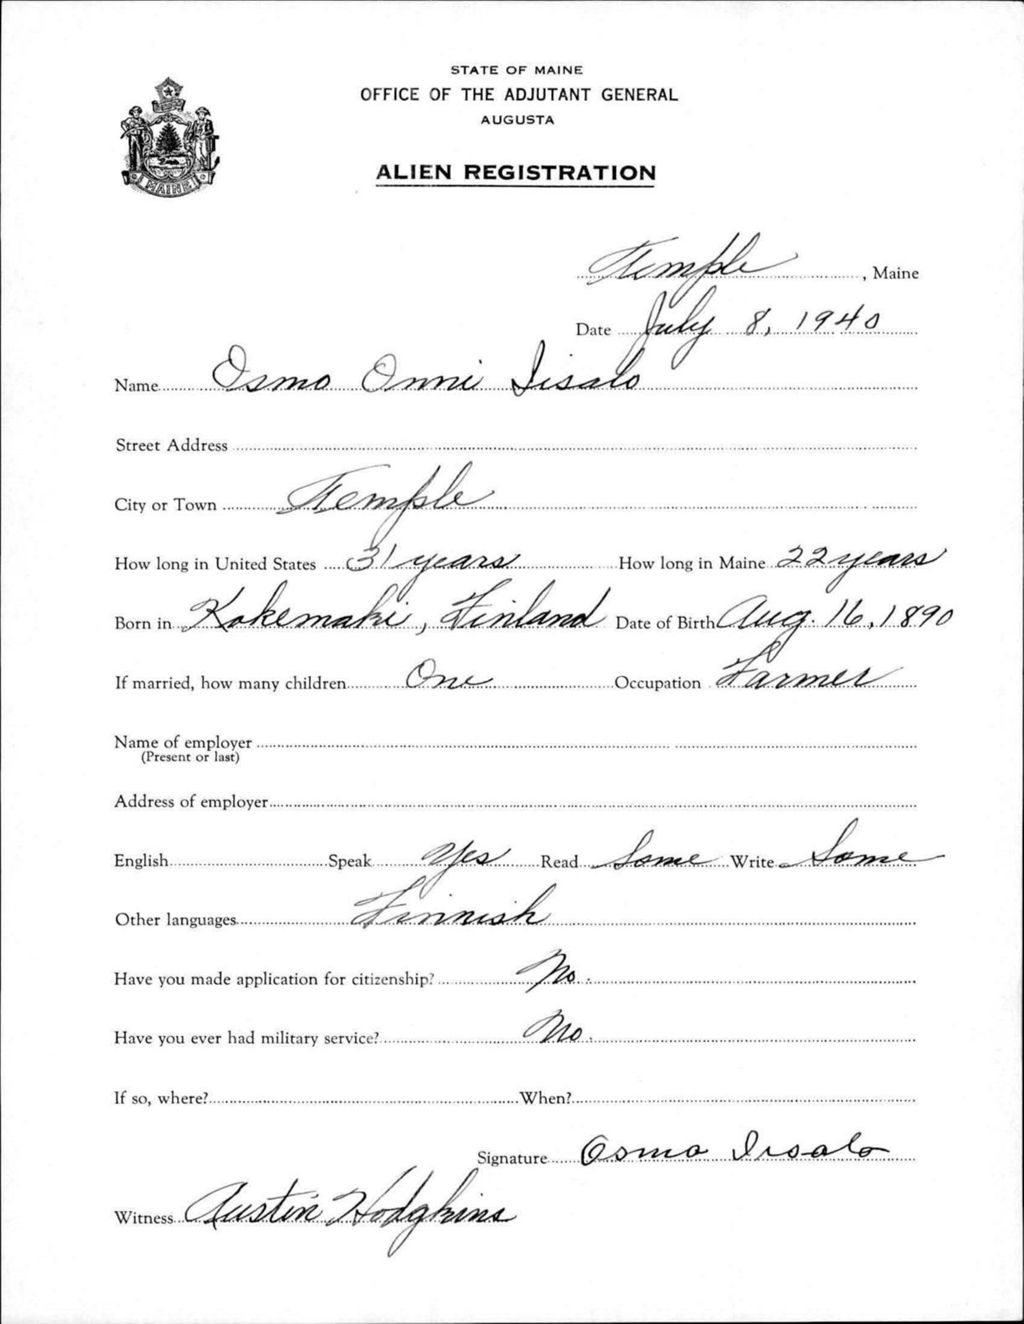 STATE OF MAINE
OFFICE OF THE ADJUTANT GENERAL
AUGUSTA
ALIEN REGISTRATION
MAINE
Temple, Maine
Date July 8, 1940
Name Osmo Onni Iisalo
Street Address
City or Town Temple
How long in United States 31 years How long in Maine 22 years
Born in Kokemaki, Finland Date of Birth Aug. 16, 1890
If married, how many children One Occupation Farmer
Name of employer
(Present or last)
Address of employer
English Speak Yes Read Some Write Some
Other languages Finnish
Have you made application for citizenship? No.
Have you ever had military service? No.
If so, where? When?
Signature Osmo Iisalo
Witness Austin Hodgkins